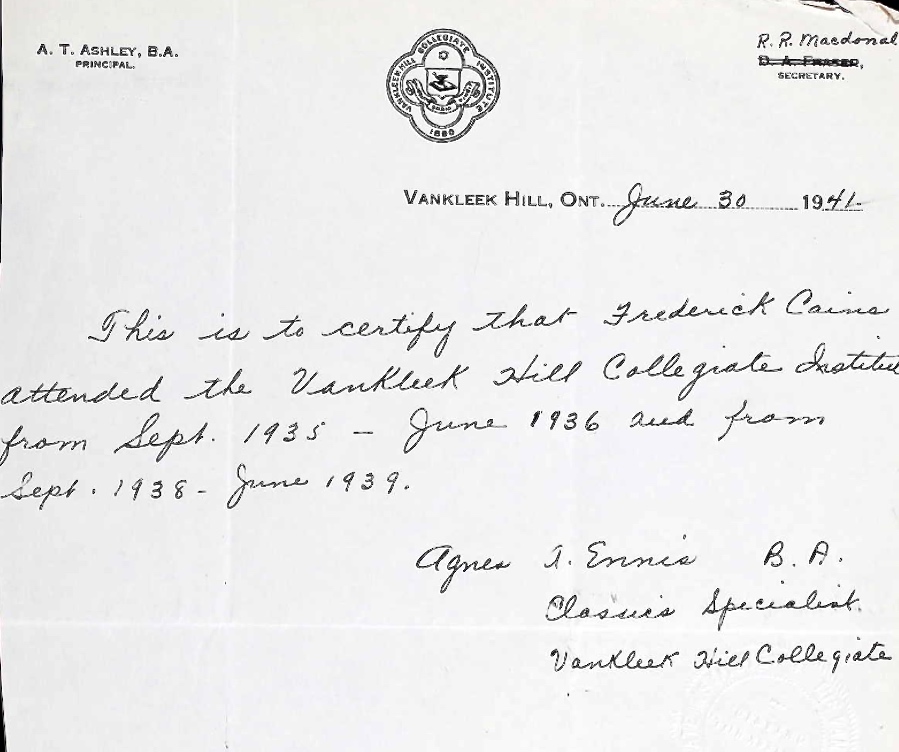 A. T. ASHLEY, B.A.
PRINCIPAL.
VANKLEEK HILL COLLEGIATE INSTITUTE
1890
R. R. Macdonal
D. A. FRASER,
SECRETARY.
VANKLEEK HILL, ONT. June 30 1941.
This is to certify that Frederick Cains
attended the VanKleek Hill Collegiate Institu
from Sept. 1935 – June 1936 and from
Sept. 1938 - June 1939.
Agnes A. Ennis B.A.
Classics Specialist.
VanKleek Hill Collegiate